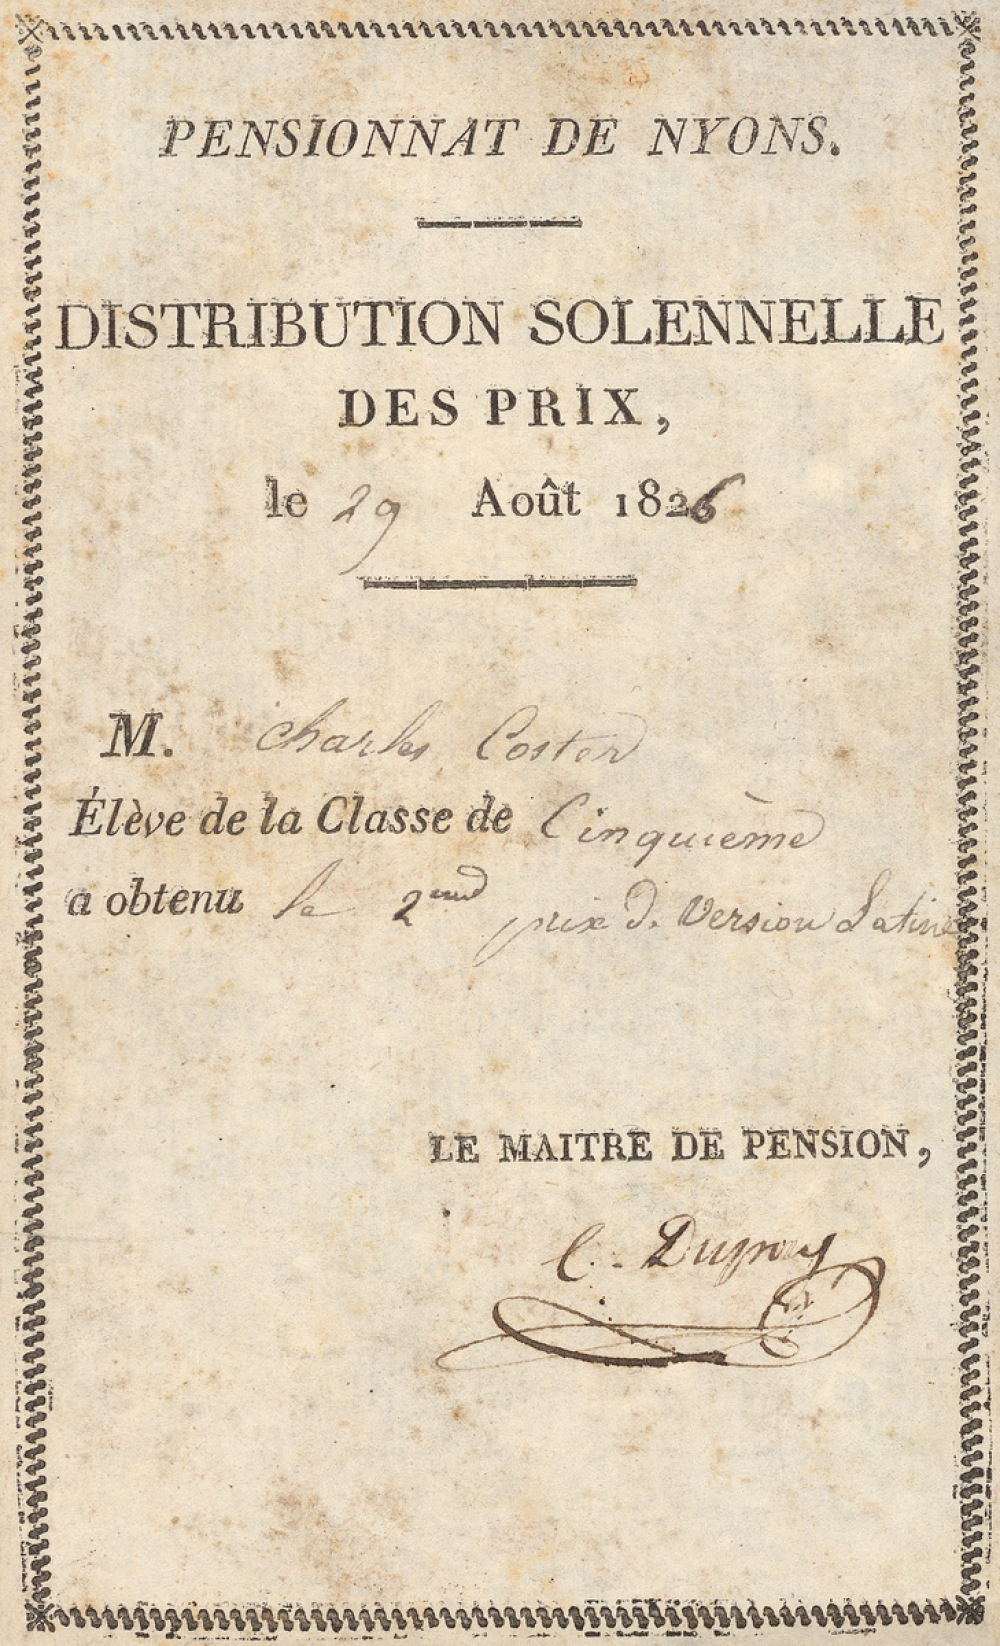 PENSIONNAT DE NYONS.
DISTRIBUTION SOLENNELLE
DES PRIX,
le 29 Août 1826
M. Charles Coster
Élève de la Classe de Cinquième
a obtenu le 2ond prix d. Version Latine
LE MAITRE DE PENSION,
C. Dupuy